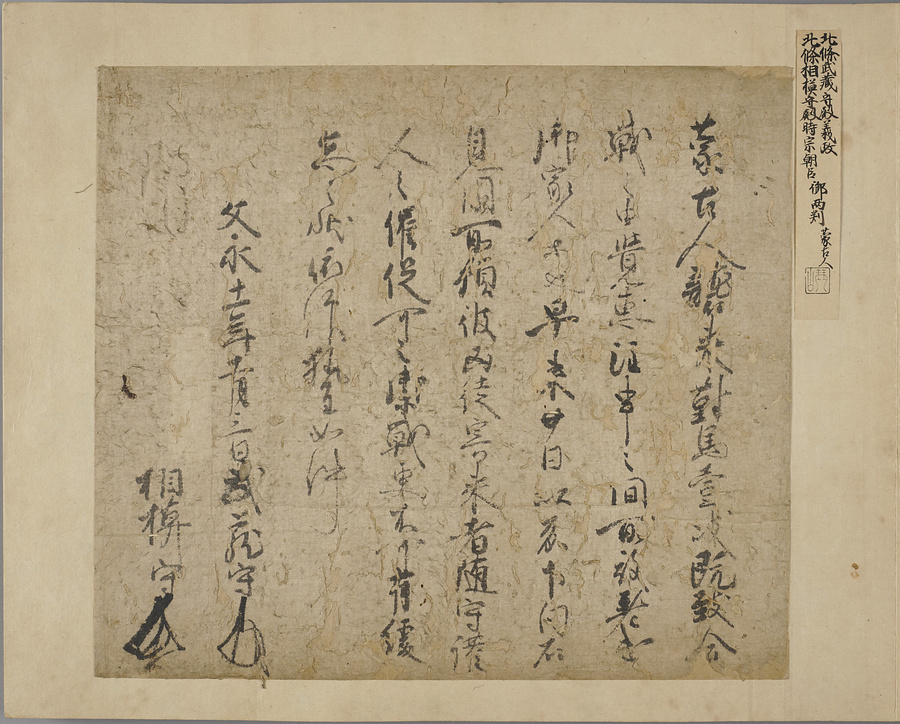 北條武藏守殿義政
北條相模守殿時宗朝臣 御両判 蒙古人
蒙古人襲来對馬壹岐既致合
戦之由覚惠注申之間所被
御家人等也早来廿日以前下向石
見国所領彼凶徒寄来者随守護
人之催促可令禦戦更不可有緩
怠之状依仰執達如件
文永十一年十一月三日武蔵守
相模守